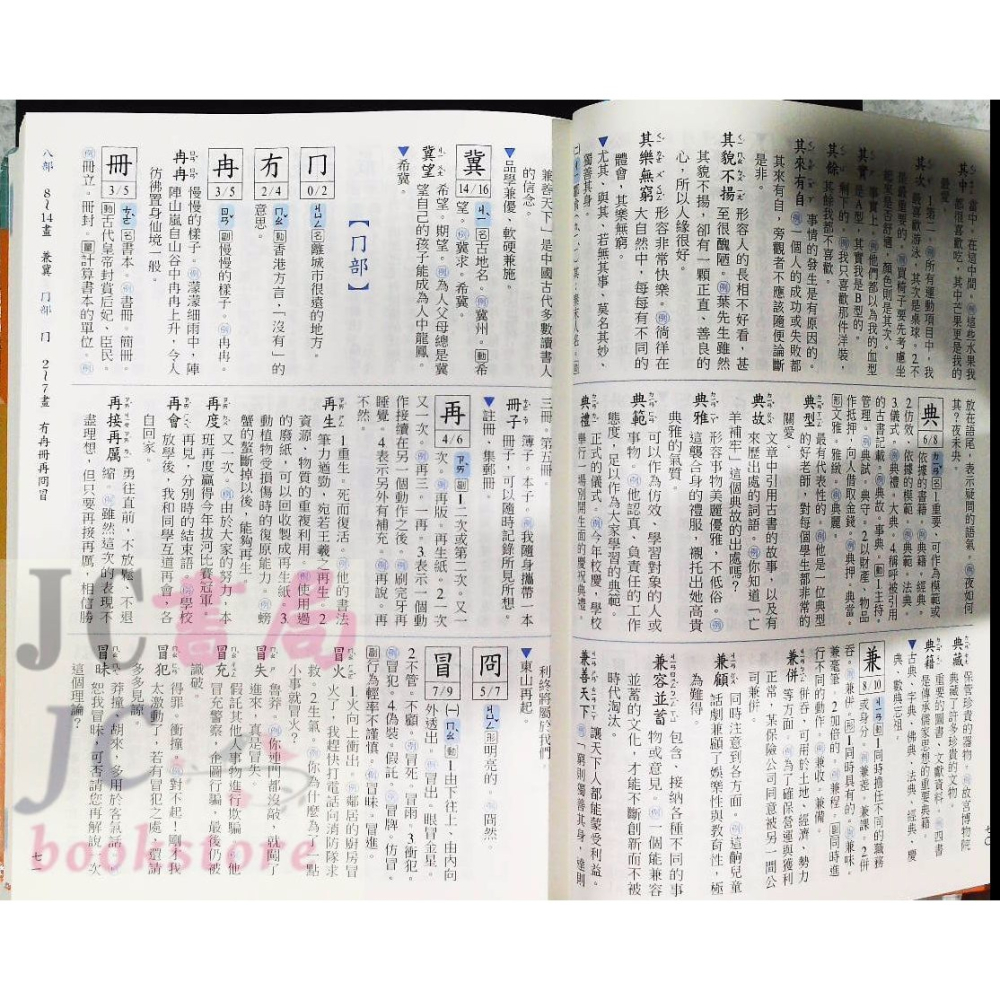 其中 當中。在這中間。例這些水果我
都很喜歡吃,其中芒果更是我的
最愛。
其次 1第二。例所有運動項目中,我
最喜歡游泳,其次是桌球。2不
是最重要的。例買椅子要先考慮坐
起來是否舒適,顏色則是其次。
其實 實際上。例他們都以為我的血型
是A型,其實我是B型的。
其餘 剩下的。例我只喜歡那件洋裝,
其餘我都不喜歡。
其來有自 事情的發生是有原因的。
例一個人的成功或失敗都
其來有自,旁觀者不應該隨便論斷
是非。
其貌不揚 形容人的長相不好看,甚
至很醜陋。例葉先生雖然
其貌不揚,卻有一顆正直、善良的
心,所以人緣很好。
其樂無窮 形容非常快樂。例徜徉在
大自然中,每每有不同的
體會,其樂無窮。
▼尤其、與其、若無其事、莫名其妙
獨善其身。
放在語尾,表示疑問的語氣。例夜如何
其?夜未央。
典 6/8 ㄉㄧㄢˇ 名1重要、可作為模範或
依據的書籍。例經典。
2仿效、依據的模範。例典範。法典。
3儀式。例典禮。大典。4稱呼被引用
的古書記載。例典故。事典。動1主持。
管理。例典試。典守。2以財產、物品
作抵押,向人借取金錢。例典押。典當。
形文雅。例雅緻。例典麗。
典型 最有代表性的。例他是一位典型
的好老師,對每個學生都非常的
關愛。
典故 文章中引用古書的故事,以及有
來歷出處的詞語。例你知道「亡
羊補牢」這個典故的出處嗎?
典雅 形容事物美麗優雅,不低俗。例
這襲合身的禮服,襯托出她高貴
典雅的氣質。
典範 可以作為仿效、學習對象的人或
事物。例他認真、負責任的工作
態度,足以作為大家學習的典範。
典禮 正式的儀式。例今年校慶,學校
舉行一場別開生面的慶祝典禮。
典藏 保管珍貴的器物。例故宮博物院
典藏了許多珍貴的文物。
典籍 重要的圖書、文獻資料。例四書
是傳承儒家思想的重要典籍。
▼古典、字典、佛典、法典、經典、慶
典、數典忘祖。
兼 8/10 ㄐㄧㄢ 動1同時擔任不同的職務
或身分。例兼差。兼課。2併
吞。例兼併。形1同時具有的。例兼味。
兼毫筆。2加倍的。例兼程。副同時進
行不同的動作。例兼收。兼備。
兼併 併吞,可用於土地、經濟、勢力
等方面。例為了確保營運與獲利
正常,某保險公司同意被另一間公
司兼併。
兼顧 同時注意到各方面。例這齣兒童
話劇兼顧了娛樂性與教育性,極
為難得。
兼容並蓄 包含、接納各種不同的事
物或意見。例一個能兼容
並蓄的文化,才能不斷創新而不被
時代淘汰。
兼善天下 讓天下人都能蒙受利益。
例「窮則獨善其身,達則
七〇
兼善天下」是中國古代多數讀書人
的信念。
▼品學兼優、軟硬兼施。
冀 14/16 ㄐㄧˋ 名古地名。例冀州。動希
望。例冀求。希冀。
冀望 希望。期望。例為人父母總是冀
望自己的孩子能成為人中龍鳳。
▼希冀。
【冂部】
冂 0/2 ㄐㄩㄥ 名離城市很遠的地方。
冇 2/4 ㄇㄠˇ 動香港方言,「沒有」的
意思。
冉 3/5 ㄖㄢˇ 副慢慢的樣子。例冉冉。
冉冉 慢慢的樣子。例濛濛細雨中,陣
陣山嵐自山谷中冉冉上升,令人
彷彿置身仙境一般。
冊 3/5 ㄘㄜˋ 名書本。例書冊。簡冊。
動古代皇帝封賞后妃、臣民。
例冊立。冊封。量計算書本的單位。例
三冊。第五冊。
冊子 簿子。本子。例我隨身攜帶一本
冊子,可以隨時記錄所見所想。
▼註冊、集郵冊。
再 4/6 ㄗㄞˋ 副1二次或第二次。又一
次。例再版。再生紙。2一次
又一次。例再三。一再。3表示一個動
作接續在另一個動作之後。例刷完牙再
睡覺。4表示另外有補充。例再說。再
不然。
再生 1重生。死而復活。例他的書法
筆力遒勁,宛若王羲之再生。2
資源、物質的重複利用。例使用過
的廢紙,可以回收製成再生紙。3
動植物受損傷時的復原能力。例螃
蟹的螯斷掉以後,能夠再生。
再度 又一次。例由於大家的努力,本
班再度贏得今年拔河比賽冠軍。
再會 再見。分別時的結束語。例學校
放學後,我和同學互道再會,各
自回家。
再接再厲 勇往直前,不放鬆、不退
縮。例雖然這次的表現不
盡理想,但只要再接再厲,相信勝
利終將屬於我們。
▼東山再起。
冏 5/7 ㄐㄩㄥˇ 形明亮的。例冏然。
冒 7/9 (一)ㄇㄠˋ 動1由下往上、由內向
外透出。例冒出。眼冒金星。
2不管。不顧。例冒死。冒雨。3衝犯。
例冒犯。4偽裝。假託。例冒牌。仿冒。
副行為輕率不謹慎。例冒昧。冒進。
冒火 1火向上衝出。例鄰居的廚房冒
火了,我趕快打電話向消防隊求
救。2生氣。例你為什麼為了一點
小事就冒火?
冒失 魯莽。例你連門都沒敲,就闖了
進來,真是冒失。
冒充 假託其他人事物進行欺騙。例他
冒充警察,企圖行騙,最後仍被
識破。
冒犯 得罪。衝撞。例對不起!剛才我
太激動了,若有冒犯之處,還請
多多見諒。
冒昧 莽撞、胡來,多用於客氣話。例
恕我冒昧,可否請您再解說一次
這個理論?
八部 8~14畫 兼冀 冂部 冂 2~7畫 冇冉冊再冏冒
七一
JC書局
JC
bookstore